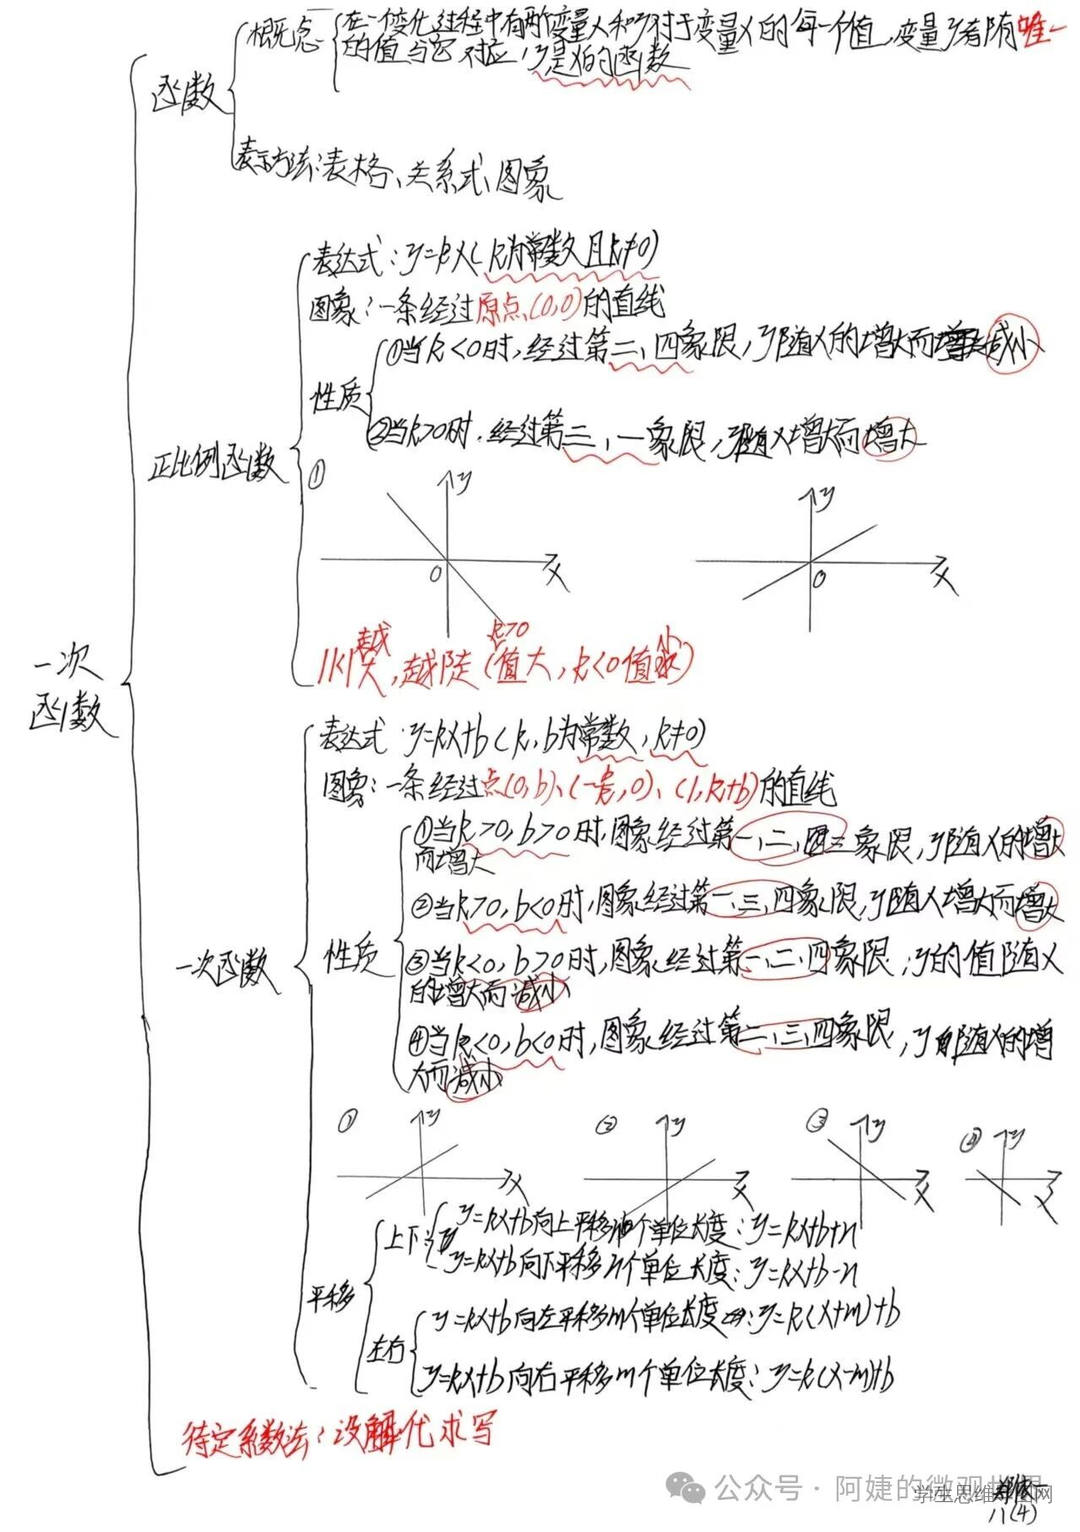 概念
在一个变化过程中有两个变量x和y对于变量x的每一个值,变量y都有唯一
的值与它对应,y是x的函数
函数
表示方法:表格、关系式、图象
表达式:y=kx(k为常数且k≠0)
图象:一条经过原点(0,0)的直线
性质
①当k<0时,经过第二、四象限,y随x的增大而减小
②当k>0时,经过第三、一象限,y随x增大而增大
正比例函数
①
y
0
x
y
0
x
|k|越大,越陡(k>0值大,k<0值小)
一次
函数
表达式 y=kx+b(k,b为常数,k≠0)
图象:一条经过点(0,b)、(-b/k,0)、(1,k+b)的直线
①当k>0,b>0时,图象经过第一、二、三象限,y随x的增大
而增大
②当k>0,b<0时,图象经过第一、三、四象限,y随x增大而增大
性质
③当k<0,b>0时,图象经过第一、二、四象限,y的值随x
的增大而减小
④当k<0,b<0时,图象经过第二、三、四象限,y随x的增
大而减小
一次函数
① y x
② y x
③ y x
④ y x
平移
上下
y=kx+b向上平移n个单位长度:y=kx+b+n
y=kx+b向下平移n个单位长度:y=kx+b-n
左右
y=kx+b向左平移m个单位长度:y=k(x+m)+b
y=kx+b向右平移m个单位长度:y=k(x-m)+b
待定系数法:设解代求写
公众号·阿婕的微观世界
学生思维导图网
八(4)